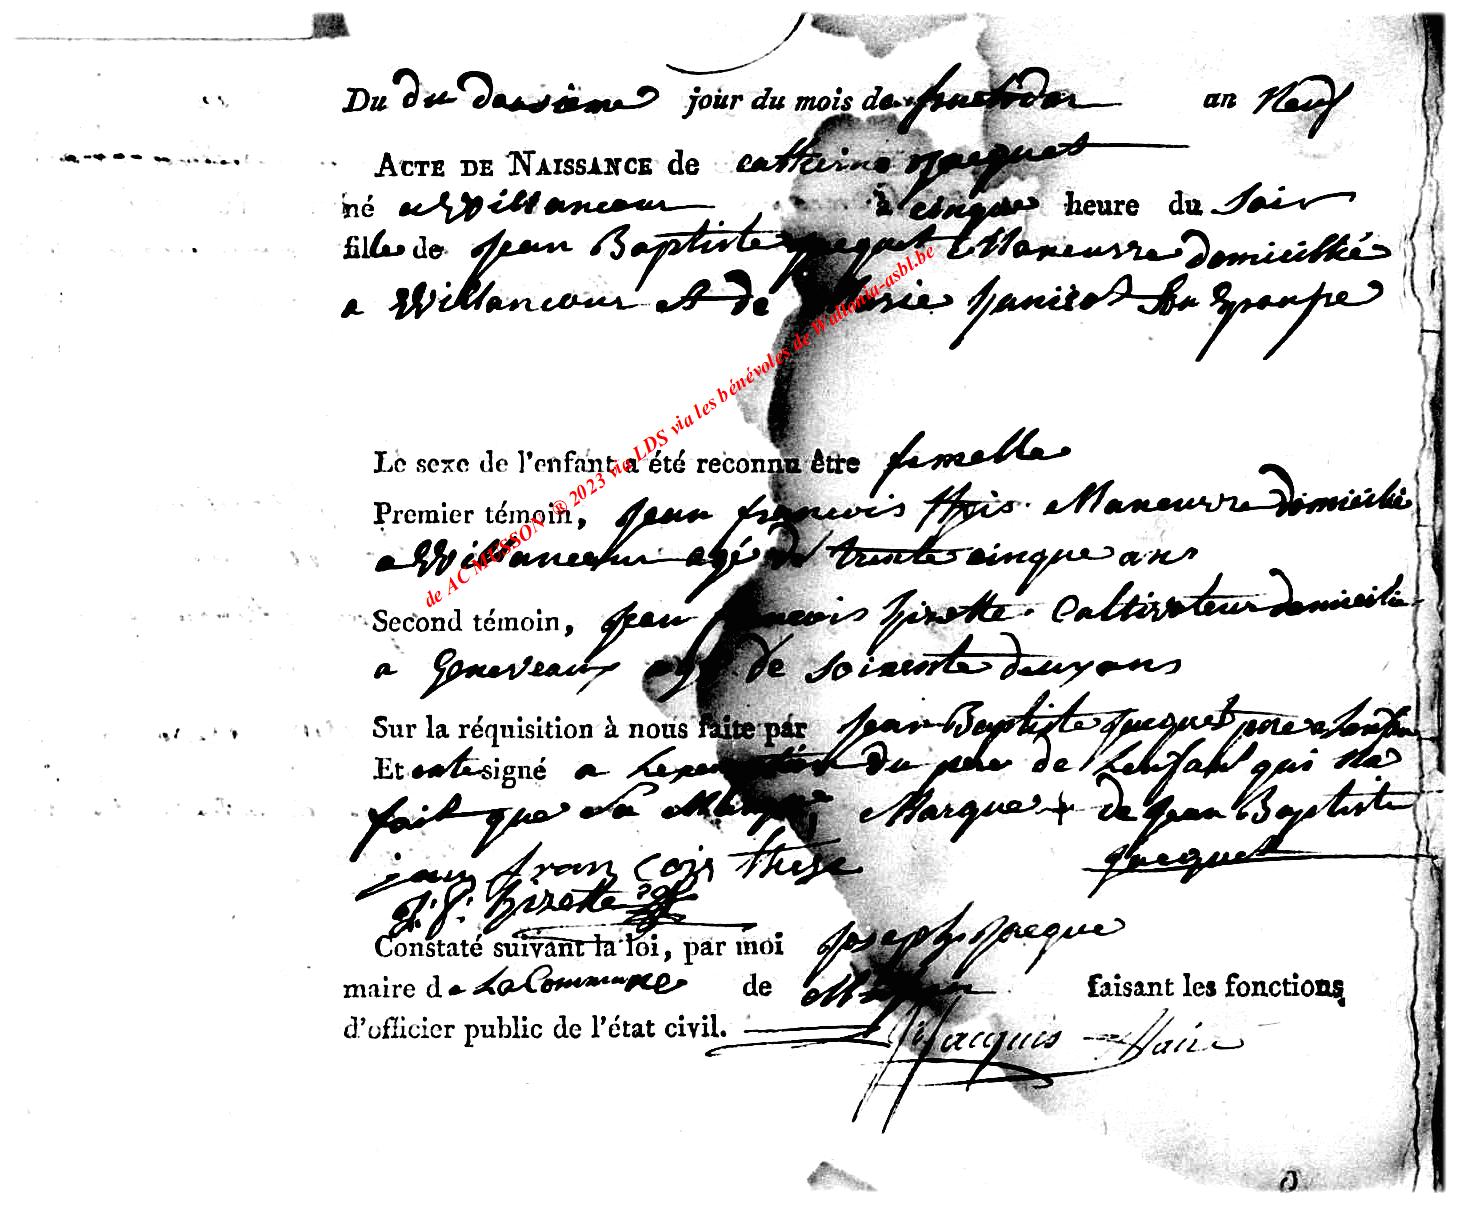 Du du deusieme jour du mois de fructidor an Neuf
ACTE DE NAISSANCE de catherine Jacquet
né a Willancour à cinque heure du Soir
fille de Jean Baptiste Jacquet Maneuvre domicilié
a Willancour et de Marie Son Epouse
Le sexe de l'enfant a été reconnu être femelle
Premier témoin, Jean francois Maneuvre domicilié
a Willancour agé de trente cinque ans
Second témoin, Jean francois hizette Cultivateur domicilié
a Genevaux agé de soixente deux ans
Sur la réquisition à nous faite par Jean Baptiste Jacquet pere a lenfan
Et ont signé a Lexception du pere de Lenfant qui na
fait que Sa Marque Marque + de Jean Baptiste
Jacquet
jean fran çois these
J: f: hizette
Constaté suivant la loi, par moi Joseph Jacque
maire de La Commune de Musson faisant les fonctions
d'officier public de l'état civil.
Jacques Maire
de AC MUSSON ® 2023 via LDS via les bénévoles de Wallonia-asbl.be